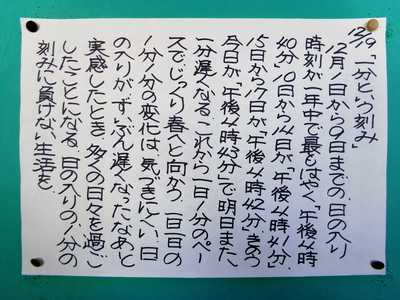 12/19「一分という刻み
12月1日から9日までの、日の入り
時刻が一年中で最もはやく、「午後4時
40分」10日から14日が「午後4時41分」、
15日から17日が「午後4時42分」きのう
今日が、「午後4時43分」で、明日また、
一分遅くなる。これから一日1分のペー
スで、じっくり春へと向かう。一日一日の
1分1分の変化は、気づきにくい。日
の入りが、ずいぶん遅くなったなあと
実感したとき、多くの日々を過ご
したことになる。日の入りの1分の
刻みに負けない生活を。